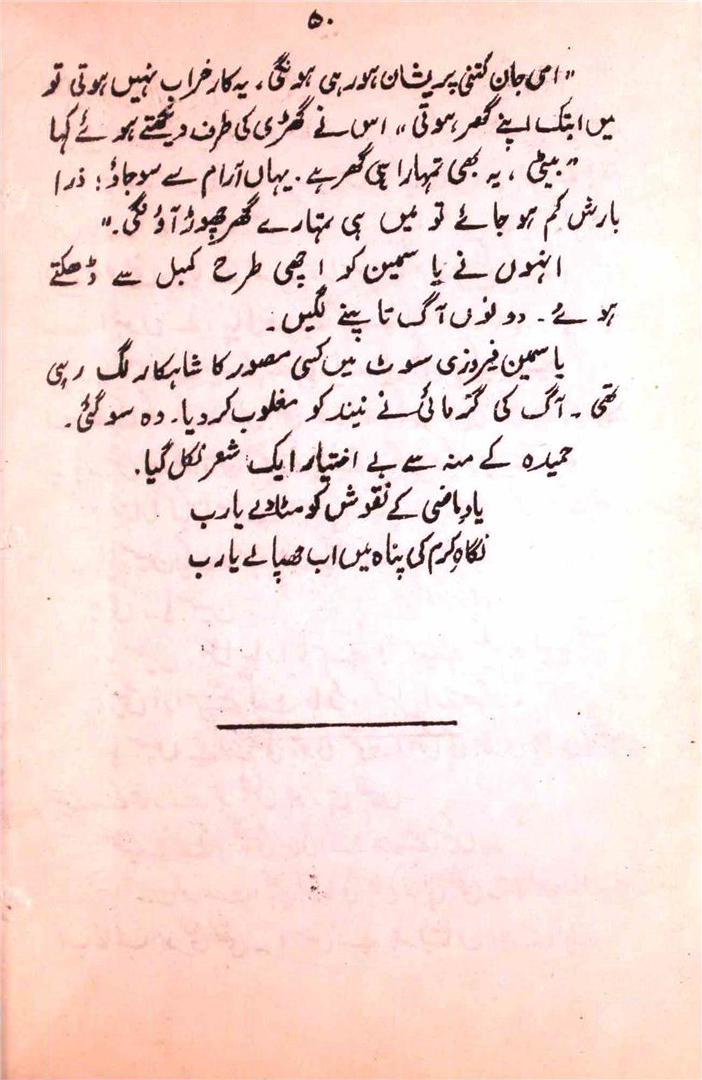 ۵۰
"امی جان کتنی پریشان ہو رہی ہونگی، یہ کار خراب نہیں ہوتی تو
میں ابتک اپنے گھر ہوتی" اس نے گھڑی کی طرف دیکھتے ہوئے کہا
"بیٹی، یہ بھی تمہارا ہی گھر ہے۔ یہاں آرام سے سو جاؤ؛ ذرا
بارش کم ہو جائے تو میں ہی تمہارے گھر چھوڑ آؤنگی۔"
انہوں نے یاسمین کو اچھی طرح کمبل سے ڈھکتے
ہوئے۔ دونوں آگ تاپنے لگیں۔
یاسمین فیروزی سوٹ میں کسی مصور کا شاہکار لگ رہی
تھی۔ آگ کی گرمائی نے نیند کو مغلوب کر دیا۔ وہ سو گئی۔
حمیدہ کے منہ سے بے اختیار ایک شعر نکل گیا۔
یادِ ماضی کے نقوش کو مٹا دے یارب
نگاہِ کرم کی پناہ میں اب چھپا لے یارب